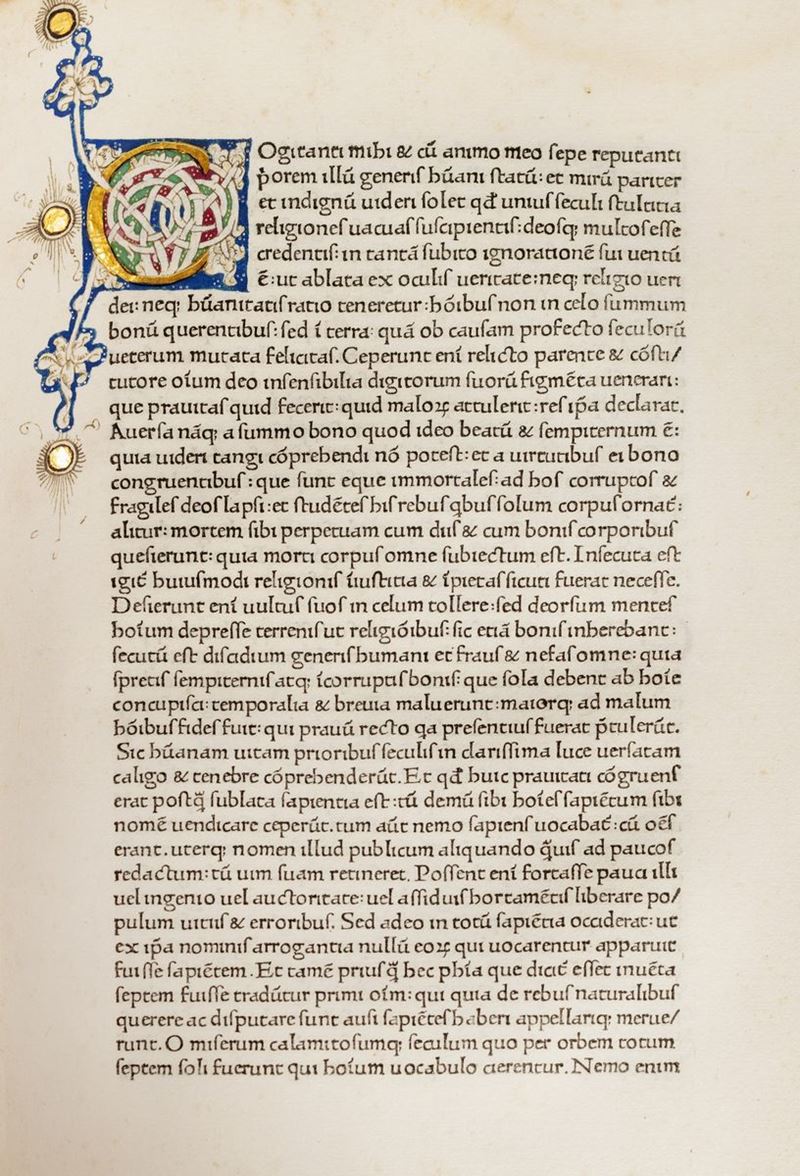 COgitanti mihi & cū animo meo sepe reputanti
p̄orem illū generiſ hūani ſtatū: et mirū pariter
et indignū uideri ſolet qđ uniuſ ſeculi ſtultitia
religioneſ uacuaſ ſuſcipientiſ: deoſq; multoſ eſſe
credentiſ: in tantā ſubito ignorationē ſui uentū
ē: ut ablata ex oculiſ ueritate: neq; religio ueri
dei: neq; hūanitatiſ ratio teneretur: hōibuſ non in celo ſummum
bonū querentibuſ: ſed ī terra: quā ob cauſam profecto ſeculorū
ueterum mutata felicitaſ. Ceperunt enī relicto parente & cōſti/
tutore oīum deo inſenſibilia digitorum ſuorū figmēta uenerari:
que prauitaſ quid fecerit: quid maloꝝ attulerit: reſ ip̄a declarat.
Auerſa nāq; a ſummo bono quod ideo beatū & ſempiternum ē:
quia uideri tangi cōprehendi nō poteſt: et a uirtutibuſ ei bono
congruentibuſ: que ſunt eque immortaleſ: ad hoſ corruptoſ &
fragileſ deoſ lapſi: et ſtudēteſ hiſ rebuſ qbuſ ſolum corpuſ ornat̄:
alitur: mortem ſibi perpetuam cum diiſ & cum boniſ corporibuſ
queſierunt: quia morti corpuſ omne ſubiectum eſt. Inſecuta eſt
igit̄ huiuſmodi religioniſ īiuſtitia & īpietaſ ſicuti fuerat neceſſe.
Deſierunt enī uultuſ ſuoſ in celum tollere: ſed deorſum menteſ
hoīum depreſſe terreniſ ut religiōibuſ: ſic etiā boniſ inherebant:
ſecutū eſt diſcidium generiſ humani et frauſ & nefaſ omne: quia
ſpretiſ ſempiterniſ atq; īcorruptiſ boniſ: que ſola debent ab hoīe
concupiſci: temporalia & breuia maluerunt: maiorq; ad malum
hōibuſ fideſ fuit: qui prauū recto qa preſentiuſ fuerat p̄tulerūt.
Sic hūanam uitam prioribuſ ſeculiſ in clariſſima luce uerſatam
caligo & tenebre cōprehenderūt. Et qđ huic prauitati cōgruenſ
erat poſtq̄ ſublata ſapientia eſt: tū demū ſibi hoīeſ ſapiētum ſibi
nomē uendicare ceperūt. tum aūt nemo ſapienſ uocabat̄: cū oēſ
erant. uterq; nomen illud publicum aliquando q̄uiſ ad paucoſ
redactum: tū uim ſuam retineret. Poſſent enī fortaſſe pauci illi
uel ingenio uel auctoritate: uel aſſiduiſ hortamētiſ liberare po/
pulum uitiiſ & erroribuſ. Sed adeo in totū ſapiētia occiderat: ut
ex ip̄a nominiſ arrogantia nullū eoꝝ qui uocarentur apparuit
fuiſſe ſapiētem. Et tamē priuſq̄ hec phīa que dicit̄ eſſet inuēta
ſeptem fuiſſe tradūtur primi oīm: qui quia de rebuſ naturalibuſ
querere ac diſputare ſunt auſi ſapiēteſ haberi appellariq; merue/
runt. O miſerum calamitoſumq; ſeculum quo per orbem totum
ſeptem ſoli fuerunt qui hoīum uocabulo cierentur. Nemo enim